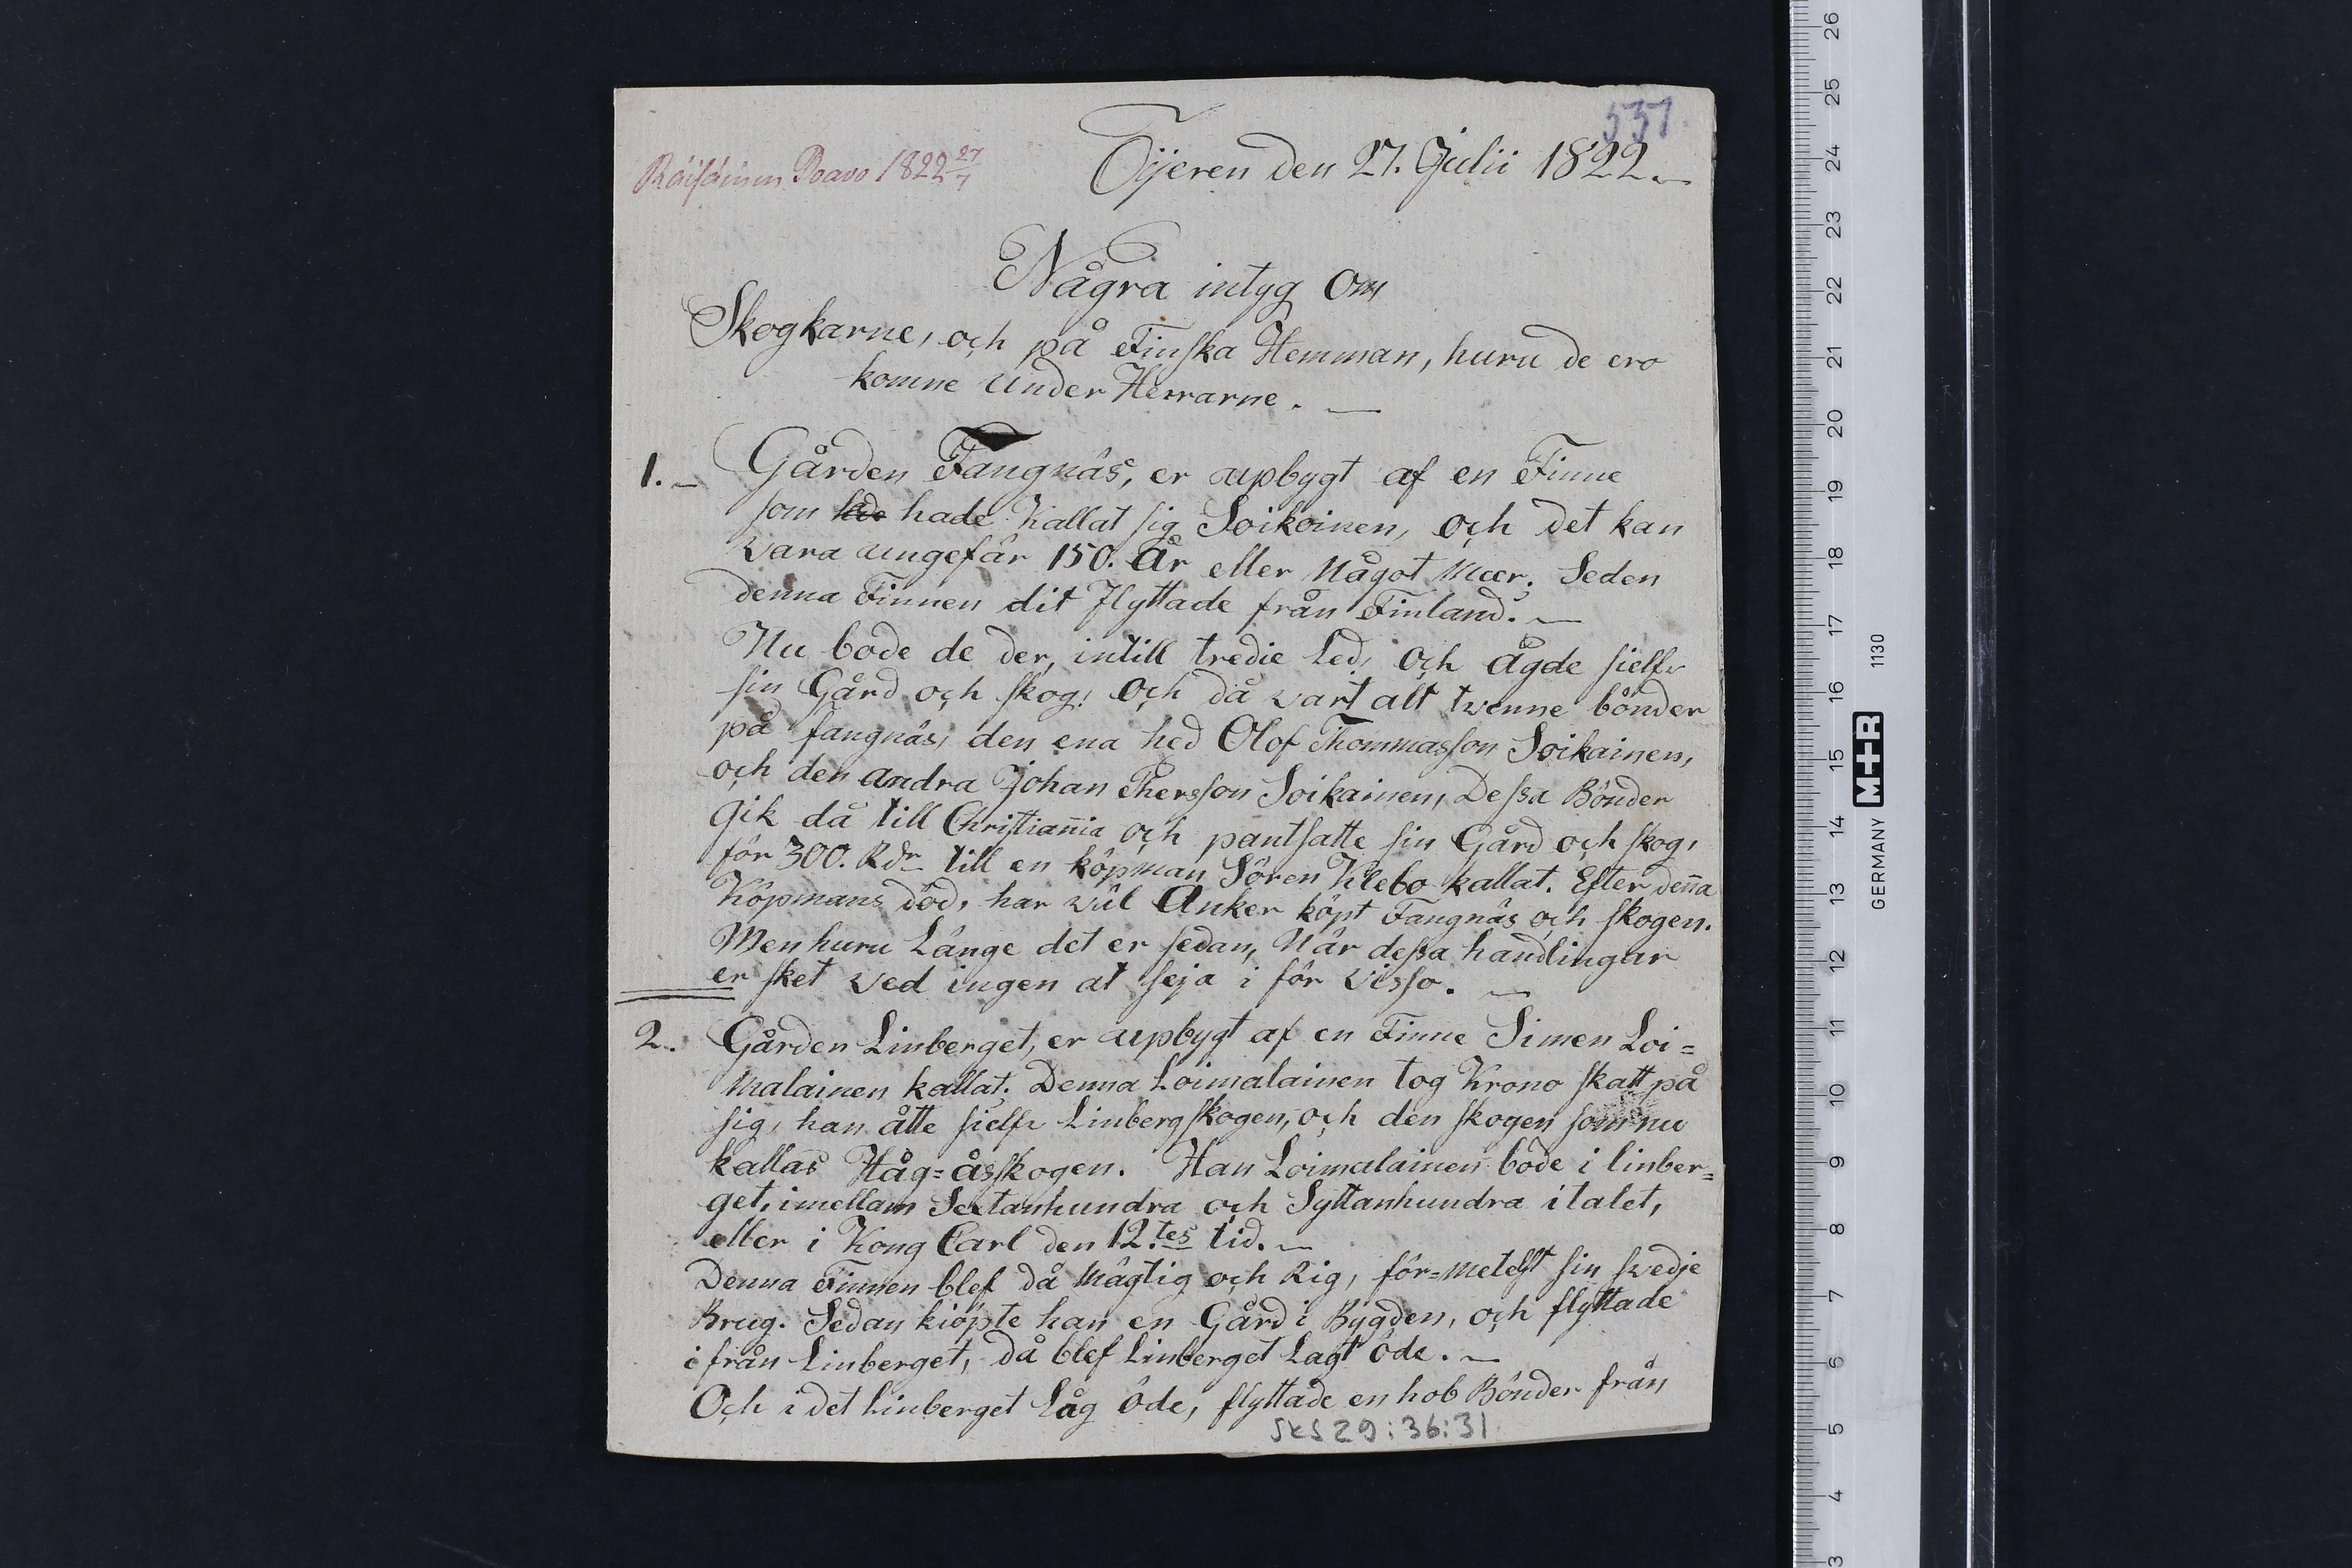 537.
Räisäinen Paavo 1822 27/7
Öijeren den 27. Julii 1822.
Några intyg Om
Skogkarne, och på Finska Hemman, huru de ero
komne under Herrarne.
1. Gården Fangnäs, er upbygt af en Finne
som hade Kallat sig Soikoinen, och det kan
vara ungefär 150. År eller Något Mær; Seden
denna Finnen dit flyttade från Finland.
Nu bode de der, intill tredie Led, och ågde sielfv
sin Gård och skog; Och då vart alt tvenne bönder
på fangnäs, den ena hed Olof Thommasson Soikainen,
och den andra Johan Phersson Soikainen, Dessa Bönder
gik då till Christiania och pantsatte sin Gård och skog,
för 300. Rdr till en köpman Sören Klebo kallat. Efter denna
Köpmans död, har väl Anker köpt Fangnäs och skogen.
Men huru Länge det er sedan, När dessa handlingar
er sket ved ingen at seja i för visso.
2. Gården Linberget, er upbygt af en Finne Simen Loi=
malainen kallat. Denna Loimalainen tog Krono skatt på
sig, han åtte sielfv Linbergskogen, och den skogen som nu
kallas Håg=åsskogen. Han Loimalainen bode i linber=
get, imellam Sextanhundra och Syttanhundra italet,
eller i Kong Carl den 12.tes tid.
Denna Finnen blef då Mägtig och Rig, för=metelst sin svedje
Brug. Sedan kiöpte han en Gård i Bygden, och flyttade
ifrån Linberget, då blef Linberget Lagt öde.
Och i det Linberget Låg öde, flyttade en hob Bönder från
SKS 29:36:31
26
25
24
23
22
21
20
19
18
17
16
15
14
13
12
11
10
9
8
7
6
5
4
3
GERMANY M+R 1130